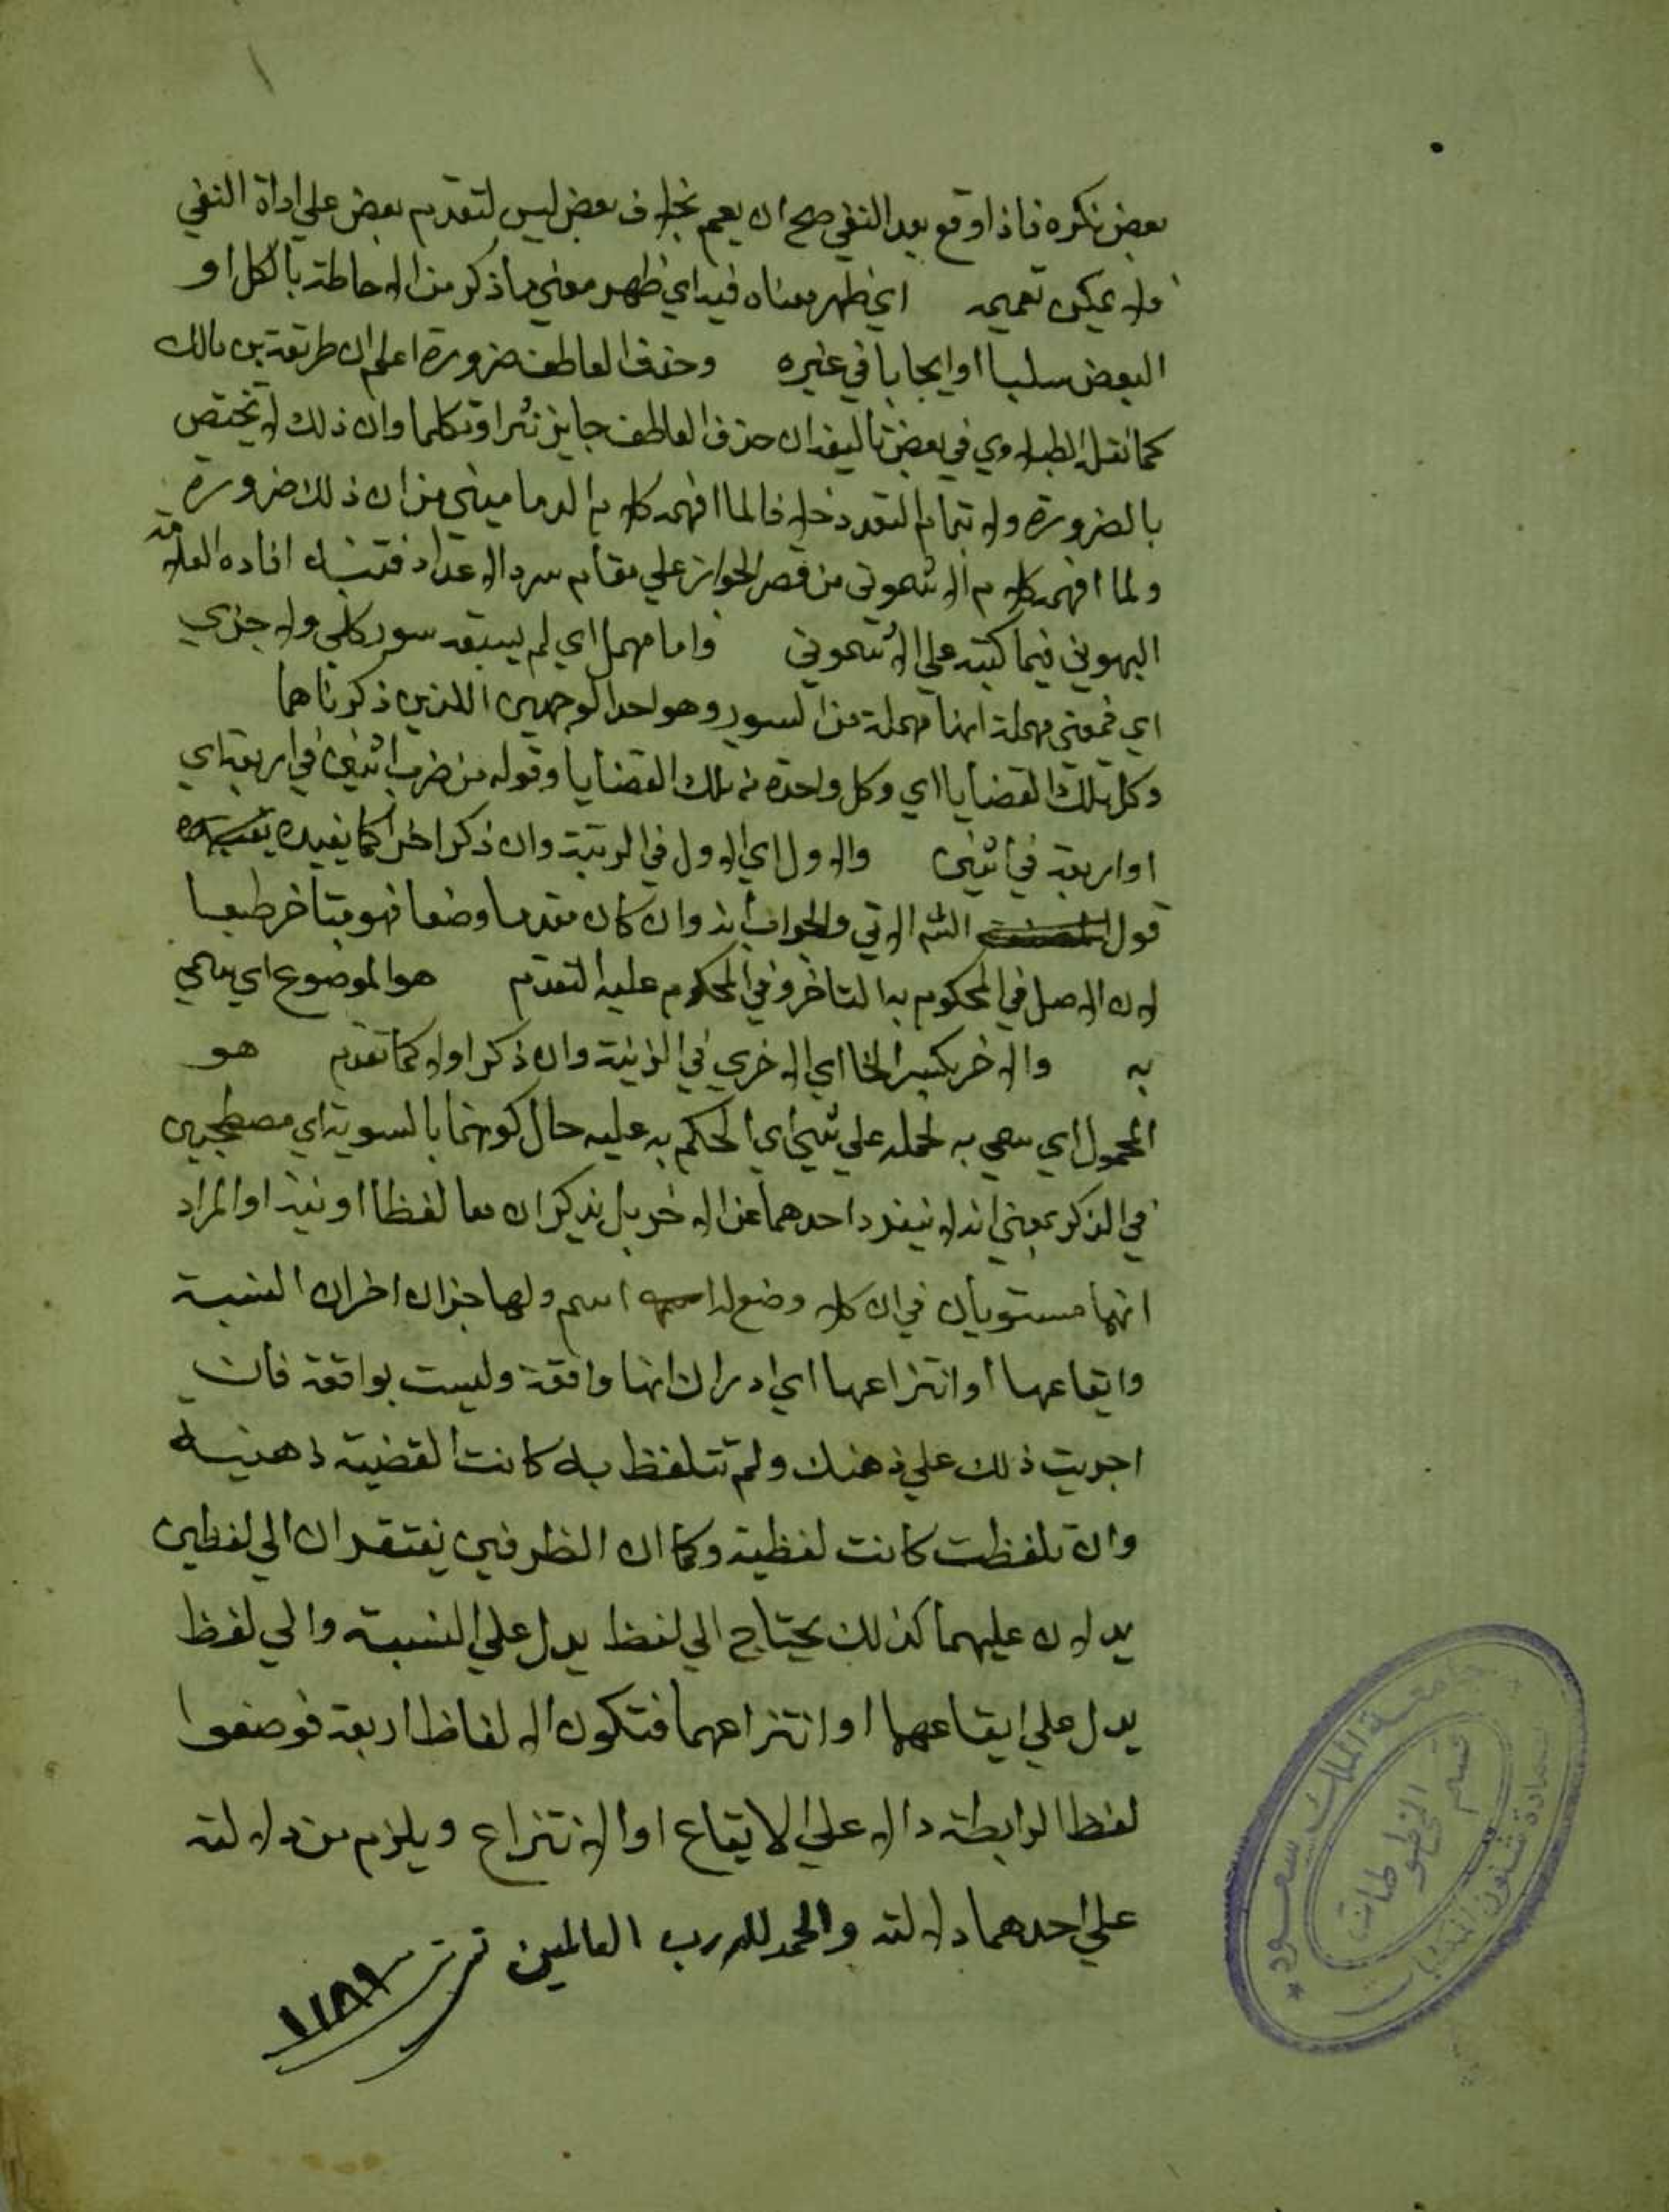 بعض نكره فاذا وقع بعد النفي صح ان يعم بخلاف بعض ليس لتقدم بعض علي اداة النفي
ولا يمكن تعميمه اي ظهر معناه فيه اي ظهر معني ما ذكر من الاحاطة بالكل او
البعض سلبا او ايجابا في غيره وحذف العاطف ضرورة اعلم ان طريقة بن مالك
كما نقل الطبلاوي في بعض تاليفه ان حذف العاطف جايز نثرا وتكلما وان ذلك لا يختص
بالضرورة ولا بمقام التعدد خلافا لما افهمه كلام الدماميني من ان ذلك ضرورة
ولما افهمه كلام الاشموني من قصر الجواز علي مقام سرد الاعداد فتنبه افاده العلامة
البهوتي فيما كتبه علي الاشموني واما مهمل اي لم يسبقه سور كلي ولا جزي
اي فمعني مهملة انها مهملة من السور وهو احد الوجهين اللذين ذكرناهما
وكل تلك القضايا اي وكل واحدة من تلك القضايا وقوله من ضرب اثنين في اربعة اي
او اربعة في اثنين والاول اي الاول في الرتبة وان ذكر اخرا كما يفيده
قول الش الاتي والجواب انه وان كان مقدما وضعا فهو متاخر طبعا
لان الاصل في المحكوم به التاخر وفي المحكوم عليه التقدم هو الموضوع اي سمي
به والاخر بكسر الخا اي الاخري في الرتبة وان ذكر اولا كما تقدم هو
المحمول اي سمي به لحمله علي شي اي الحكم به عليه حال كونهما بالسوية اي مصطحبين
في الذكر بمعني انه لا ينفرد احدهما عن الاخر بل يذكران معا لفظا او نية او المراد
انهما مستويان في ان كلا وضع له اسم ولها جزان اخران النسبة
وايقاعها او انتزاعها اي ادراك انها واقعة وليست بواقعة فان
اجريت ذلك علي ذهنك ولم تتلفظ به كانت القضية ذهنية
وان تلفظت كانت لفظية وكما ان الطرفين يفتقران الي لفظين
يدلان عليهما كذلك يحتاج الي لفظ يدل علي النسبة والي لفظ
يدل علي ايقاعهما او انتزاعهما فتكون الالفاظ اربعة فوضعوا
لفظ الرابطة دالا علي الايقاع او الانتزاع ويلزم من دلالته
علي احدهما دلالته والحمد لله رب العالمين تمت
١١٨٩
جامعة الملك سعود
قسم المخطوطات
عمادة شئون المكتبات